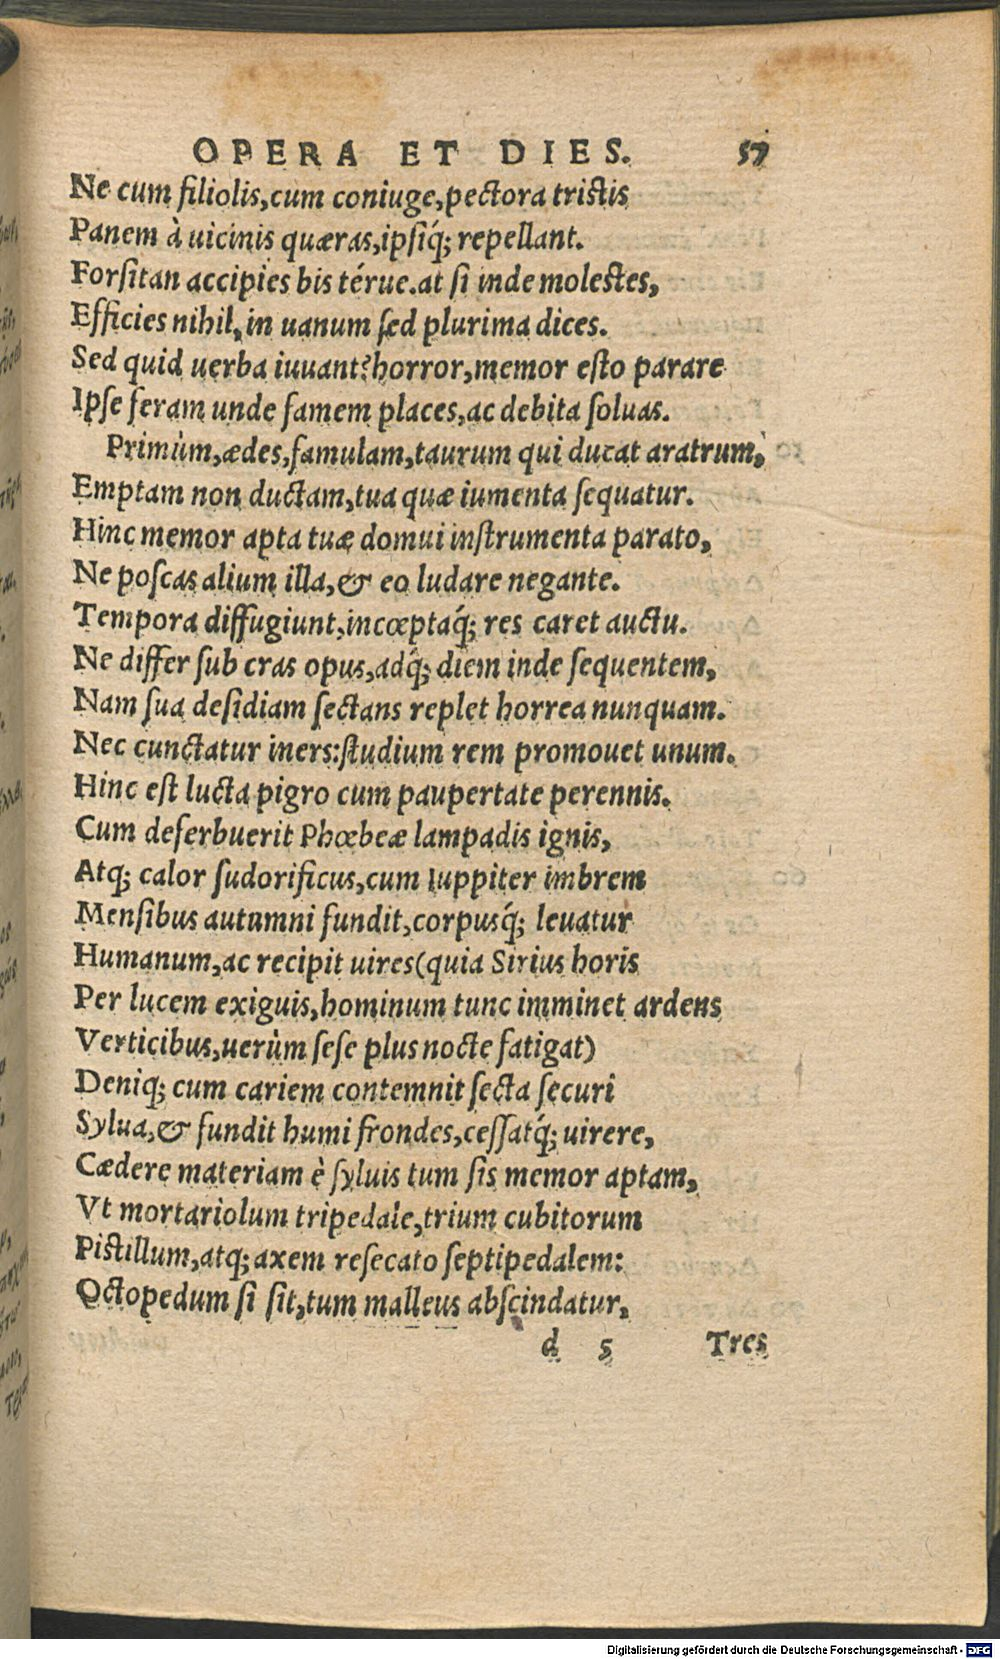 OPERA ET DIES. 57
Ne cum filiolis,cum coniuge,pectora tristis
Panem à uicinis quæras,ipsiq́; repellant.
Forsitan accipies bis térue.at si inde molestes,
Efficies nihil,in uanum sed plurima dices.
Sed quid uerba iuuant?horror,memor esto parare
Ipse feram unde famem places,ac debita soluas.
Primùm,ædes,famulam,taurum qui ducat aratrum,
Emptam non ductam,tua quæ iumenta sequatur.
Hinc memor apta tuæ domui instrumenta parato,
Ne poscas alium illa,& eo ludare negante.
Tempora diffugiunt,incœptaq́; res caret auctu.
Ne differ sub cras opus,adq́; diem inde sequentem,
Nam sua desidiam sectans replet horrea nunquam.
Nec cunctatur iners:studium rem promouet unum.
Hinc est lucta pigro cum paupertate perennis.
Cum deferbuerit Phœbeæ lampadis ignis,
Atq; calor sudorificus,cum Iuppiter imbrem
Mensibus autumni fundit,corpusq́; leuatur
Humanum,ac recipit uires(quia Sirius horis
Per lucem exiguis,hominum tunc imminet ardens
Verticibus,uerùm sese plus nocte fatigat)
Deniq; cum cariem contemnit secta securi
Sylua,& fundit humi frondes,cessatq́; uirere,
Cædere materiam è syluis tum sis memor aptam,
Vt mortariolum tripedale,trium cubitorum
Pistillum,atq; axem resecato septipedalem:
Octopedum si sit,tum malleus abscindatur,
d 5 Tres
Digitalisierung gefördert durch die Deutsche Forschungsgemeinschaft - DFG